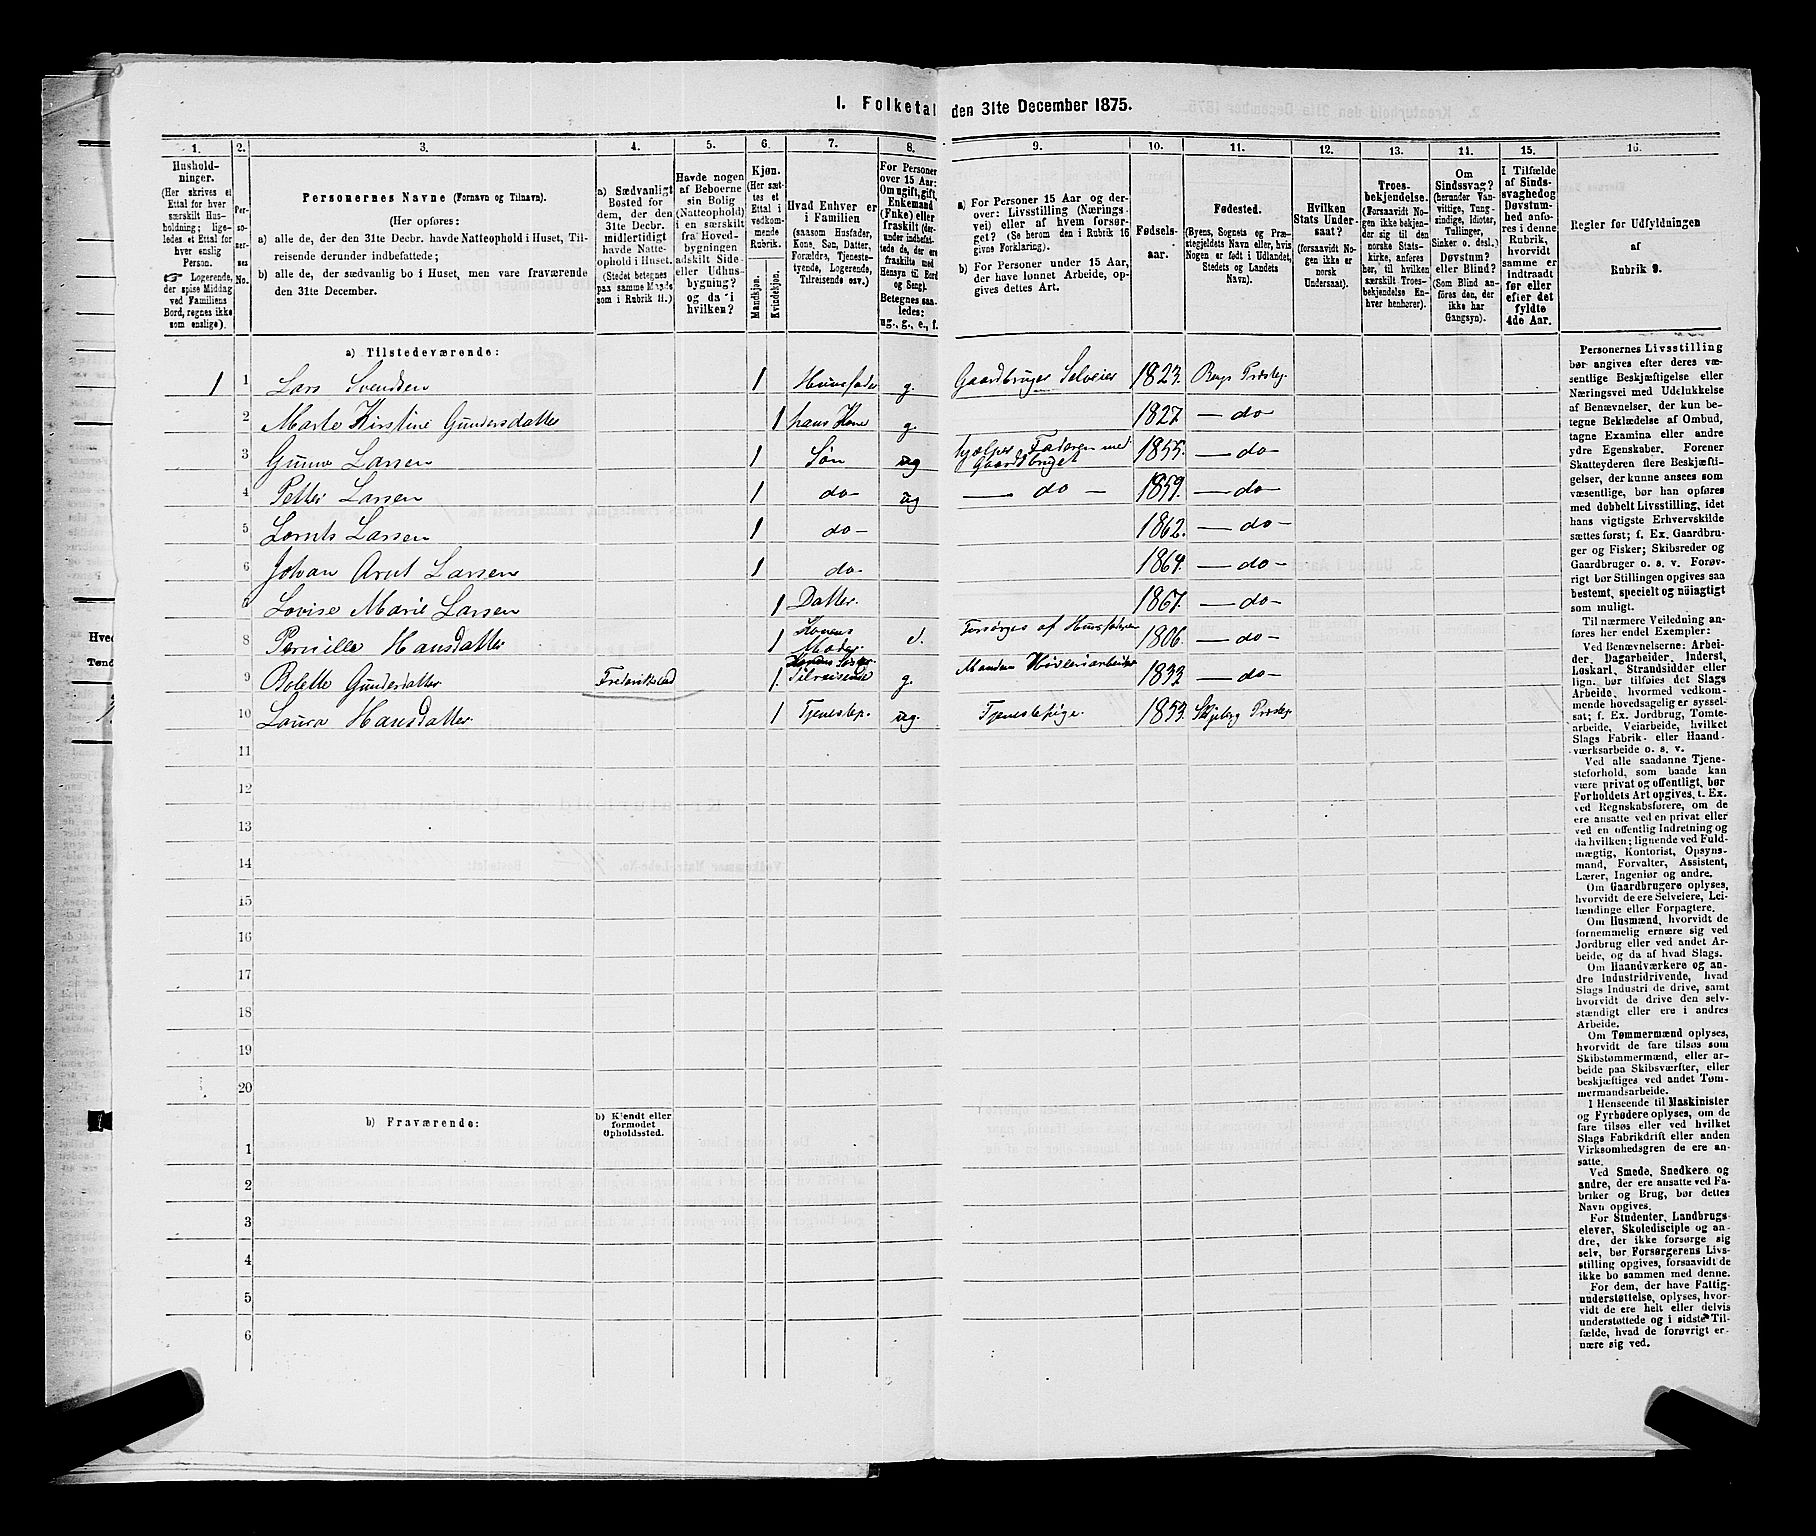 1. Folketal den 31te December 1875.
1. 2. 3. 4. 5. 6. 7. 8. 9. 10. 11. 12. 13. 14. 15. 16.
Husholdninger. (Her skrives et Ettal for hver særskilt Husholdning; ligeledes et Ettal for hver enslig Person. ☞ Logerende, der spise Middag ved Familiens Bord, regnes ikke som enslige).
Personernes No.
Personernes Navne (Fornavn og Tilnavn).
(Her opføres:
a) alle de, der den 31te Decbr. havde Natteophold i Huset, Tilreisende derunder indbefattede;
b) alle de, der sædvanlig bo i Huset, men vare fraværende den 31te December.
a) Sædvanligt Bosted for dem, der den 31te Decbr. midlertidigt havde Natteophold i Huset. (Stedet betegnes paa samme Maade som i Rubrik 11.)
Havde nogen af Beboerne sin Bolig (Natteophold) i en særskilt fra Hovedbygningen adskilt Side- eller Udhusbygning? og da i hvilken?
Kjøn. (Her sættes et Ettal i vedkommende Rubrik.
Mandkjøn. Kvindekjøn.
Hvad Enhver er i Familien (saasom Husfader, Kone, Søn, Datter, Forældre, Tjenestetyende, Logerende, Tilreisende osv.)
For Personer over 15 Aar: Om ugift, gift, Enkemand (Enke) eller fraskilt (derunder indbefattede de, der ere fraskilte med Hensyn til Bord og Seng). Betegnes saaledes: ug., g., e., f.
a) For Personer 15 Aar og derover: Livsstilling (Næringsvei) eller af hvem forsørget? (Se herom den i Rubrik 16 givne Forklaring).
b) For Personer under 15 Aar, der have lønnet Arbeide, opgives dettes Art.
Fødselsaar.
Fødested. (Byens, Sognets og Præstegjeldets Navn eller, hvis Nogen er født i Udlandet, Stedets og Landets Navn).
Hvilken Stats Undersaat? (forsaavidt Nogen ikke er norsk Undersaat).
Troesbekjendelse. (Forsaavidt Nogen ikke bekjender sig til den norske Statskirke, anføres her, til hvilken særskilt Troesbekjendelse Enhver henhører).
Om Sindssvag? (herunder Vanvittige, Tungsindige, Idioter, Tullinger, Sinker o. desl.) Døvstum? eller Blind? (Som Blind anføres den, der ikke har Gangsyn).
I Tilfælde af Sindssvaghed og Døvstumhed anføres i denne Rubrik, hvorvidt samme er indtraadt før eller efter det fyldte 4de Aar.
Regler for Udfyldningen af Rubrik 9.
a) Tilstedeværende:
1 1 Lars Svendsen 1 Huusfader g. Gaardbruger Selveier 1823. Bergs Præstegj.
2 Marte Kirstine Gundersdatter 1 hans Kone g. 1827. — do —
3 Gunne Larsen 1 Søn ug hjælper Faderen med Gaardbruget 1855. — do —
4 Petter Larsen 1 do — ug — do — 1859. — do —
5 Lornts Larsen 1 do — 1862. — do —
6 Johan Arnt Larsen 1 do — 1864. — do —
7 Lovise Marie Larsen 1 Datter. 1867. — do —
8 Pernille Hansdatter 1 Konens Moder e. Forsørges af Huusfaderen 1806. — do —
9 Bolette Gundersdatter Frederikstad 1. Konens Søster. Tilreisende g. Manden Høvleriarbeider 1833 — do —
10 Laura Hansdatter 1 Tjenestep. ug. Tjenestepige. 1853. Skjeberg Præstegj.
11
12
13
14
15
16
17
18
19
20
b) Fraværende:
b) Kjendt eller formodet Opholdssted.
1
2
3
4
5
6
Personernes Livsstilling
bør angives efter deres væ-
sentlige Beskjæftigelse eller
Næringsvei med Udelukkelse
af Benævnelser, der kun be-
tegne Beklædelse af Ombud,
tagne Examina eller andre
ydre Egenskaber. Forener
Skatteyderen flere Beskjæfti-
gelser, der kunne ansees som
væsentlige, bør han opføres
med dobbelt Livsstilling, idet
hans vigtigste Erhvervskilde
sættes først; f. Ex. Gaardbru-
ger og Fisker; Skibsreder og
Gaardbruger o. s. v. Forøv-
rigt bør Stillingen opgives saa
bestemt, specielt og nöiagtigt
som muligt.
Til nærmere Veiledning an-
føres her endel Exempler:
Ved Benævnelserne: Arbei-
der, Dagarbeider, Inderst,
Løskarl, Strandsidder eller
lign. bør tilføies det Slags
Arbeide, hvormed vedkom-
mende hovedsagelig er syssel-
sat; f. Ex. Jordbrug, Tomte-
arbeide, Veiarbeide, hvilket
Slags Fabrik- eller Haand-
værksarbeide o. s. v.
Ved alle saadanne Tjene-
steforhold, som baade kan
være privat og offentligt, bør
Forholdets Art opgives, t. Ex.
ved Regnskabsførere, om de
ere ansatte ved en privat eller
ved en offentlig Indretning og
da hvilken; lignende ved Fuld-
mægtig, Kontorist, Opsyns-
mand, Forvalter, Assistent,
Lærer, Ingeniør og andre.
Om Gaardbrugere oplyses,
hvorvidt de ere Selveiere, Lei-
lændinge eller Forpagtere.
Om Husmænd, hvorvidt de
fornemmelig ernære sig ved
Jordbrug eller ved andet Ar-
beide, og da af hvad Slags.
Om Haandværkere og an-
dre Industridrivende, hvad
Slags Industri de drive, samt
hvorvidt de drive den selv-
stændigt eller ere i andres
Arbeide.
Om Tømmermænd oplyses,
hvorvidt de fare tilsøs som
Skibstømmermænd, eller ar-
beide paa Skibsværfter, eller
beskjæftiges ved andet Tøm-
mermandsarbeide.
I Henseende til Maskinister
og Fyrbødere oplyses, om de
fare tilsøs eller ved hvilket
Slags Fabrikdrift eller anden
Virksomhedsgren de ere an-
satte.
Ved Smede, Snedkere og
andre, der ere ansatte ved Fa-
briker og Brug, bør dettes
Navn opgives.
For Studenter, Landbrugs-
elever, Skoledisciple og an-
dre, der ikke forsørge sig
selv, bør Forsørgerens Livs-
stilling opgives, forsaavidt de
ikke bo sammen med denne.
For dem, der have Fattig-
understøttelse, oplyses, hvor-
vidt de ere helt eller delvis
understøttede og i sidste Til-
fælde, hvad de forøvrigt er-
nære sig ved.